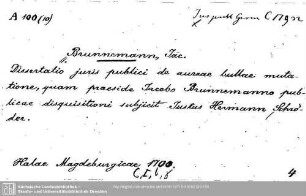 A 100 (10)
Jus publ. Germ. C 179 n
Brunnemann, Jac.
Dissertatio juris publici de aureae bullae muta-
tione, quam praeside Jacobo Brunnemanno pub-
licae disquisitioni subjicit Justus Hermann Schrö-
der.
Halae Magdeburgicae 1700.
4
Sächsische Landesbibliothek -
Staats- und Universitätsbibliothek Dresden